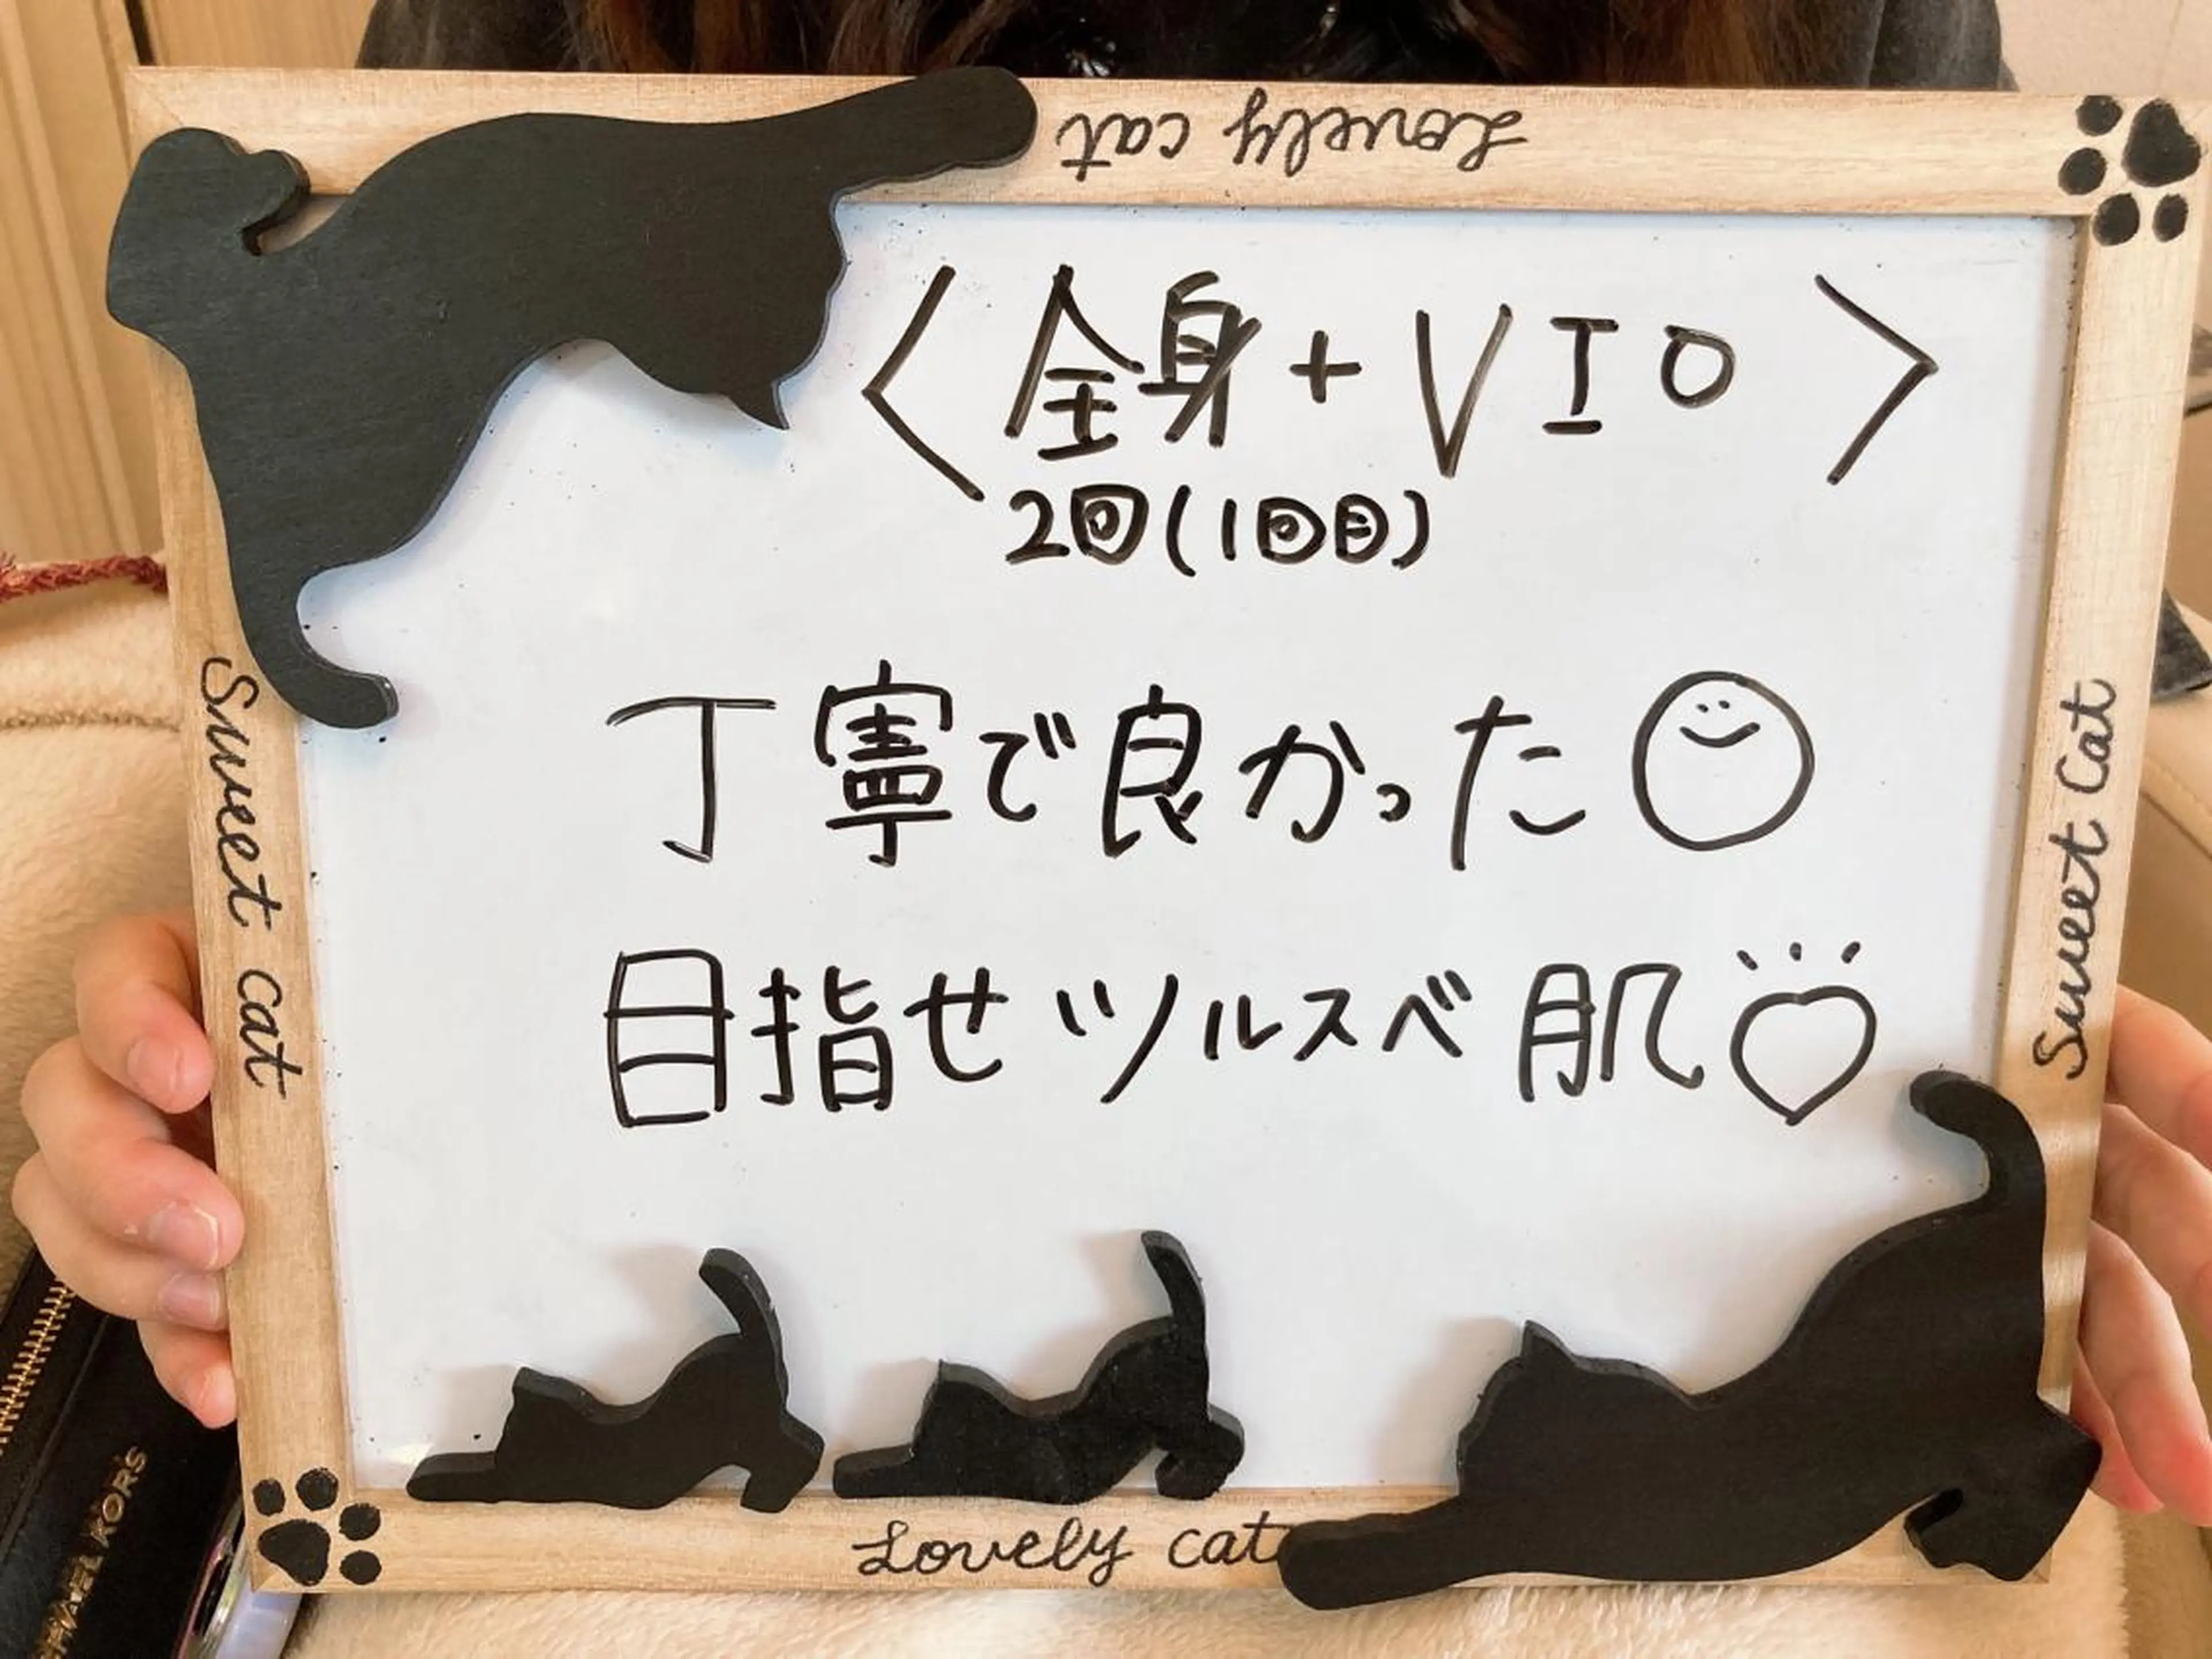 Lovely cat
<全身+VIO>
2回(1回目)
丁寧で良かった
目指せツルスベ肌
Sweet cat
Sweet Cat
Lovely cat
MICHAEL KORS